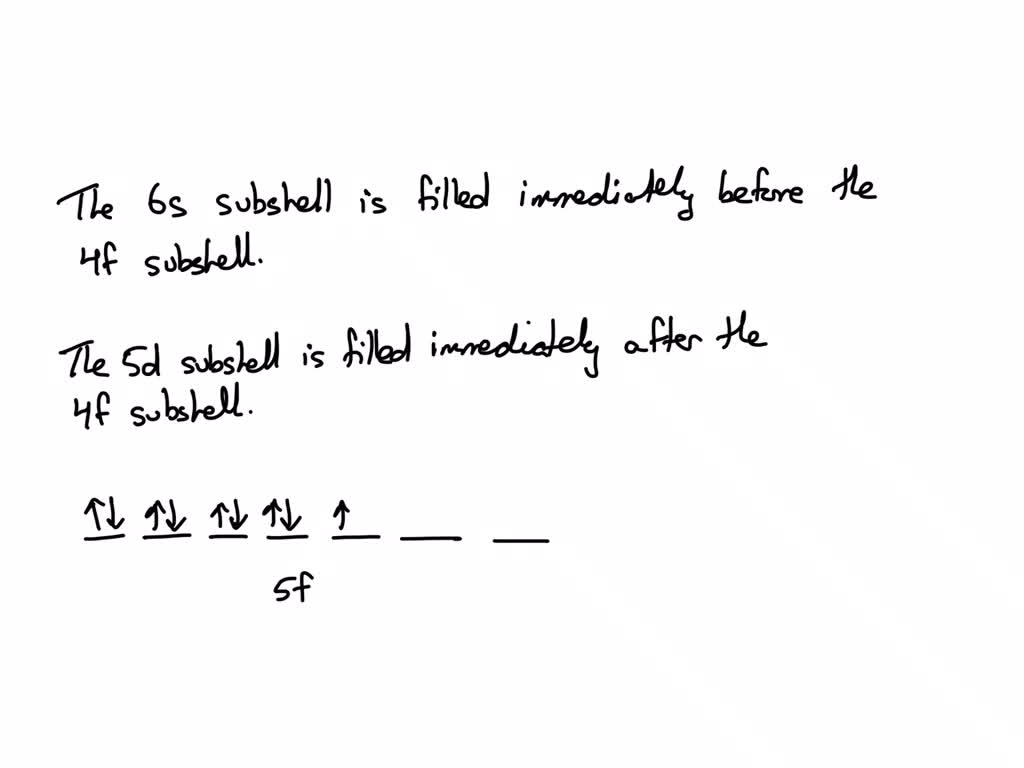 The 6s subshell is filled immediately before the
4f subshell.
The 5d subshell is filled immediately after the
4f subshell.
↑↓ ↑↓ ↑↓ ↑↓ ↑
5f